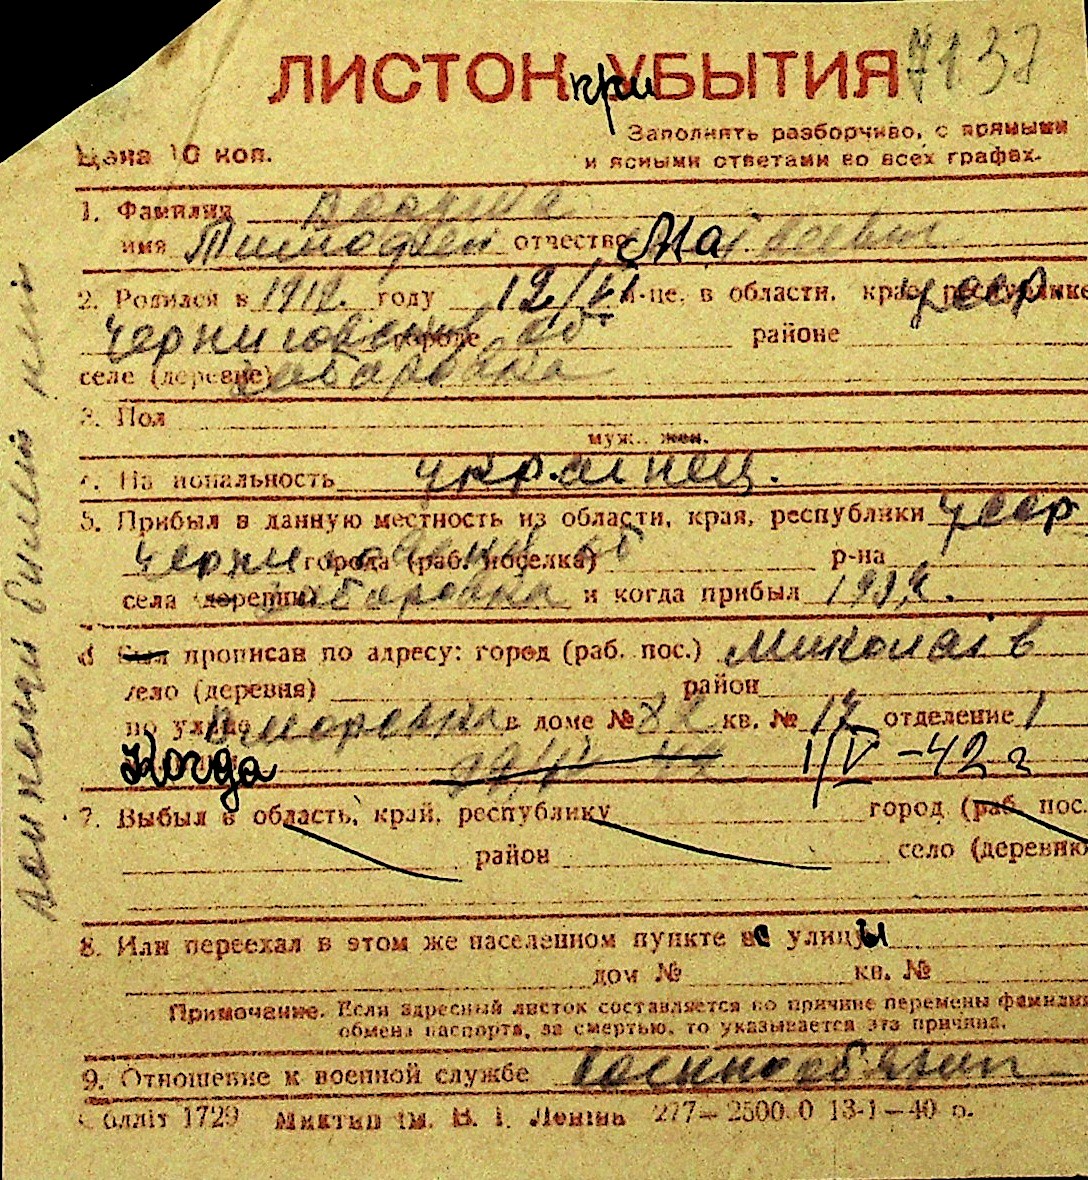 ЛИСТОК при УБЫТИЯ 7137
Заполнять разборчиво, с прямыми
Цена 10 коп.
и ясными ответами во всех графах.
1. Фамилия
имя Тимофей отчество
2. Родился в 1912. году 12/VI м-це, в области, крае, республике УССР
Черниговский городе об районе
селе (деревне)
3. Пол
муж., жен.
4. Национальность українец.
5. Прибыл в данную местность из области, края, республики УССР
Черниговский об города (раб. поселка) р-на
села (деревни) и когда прибыл
6 Был прописан по адресу: город (раб. пос.) Миколаів
село (деревня) район
по улице в доме № 82 кв. № 17 отделение 1
Когда I/V-42 г
7. Выбыл в область, край, республику город (раб. пос.
район село (деревню
8. Или переехал в этом же населенном пункте с улицы
дом № кв. №
Примечание. Если адресный листок составляется по причине перемены фамилии
обмена паспорта, за смертью, то указывается эта причина.
9. Отношение к военной службе военнообязан
Облліт 1729 Миктип ім. В. І. Леніна 277—25000 13-1—40 р.